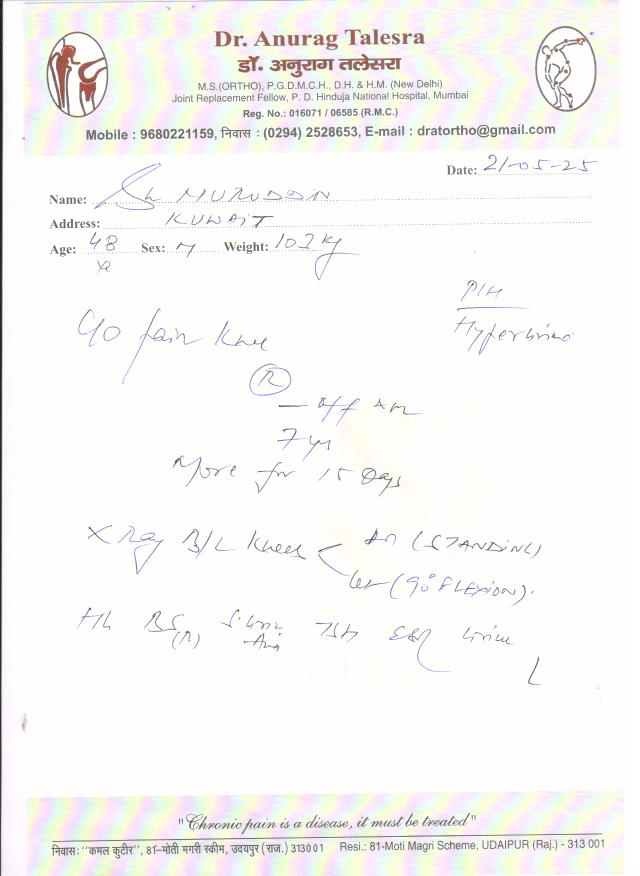 Dr. Anurag Talesra
डॉ. अनुराग तलेसरा
M.S.(ORTHO), P.G.D.M.C.H., D.H. & H.M. (New Delhi)
Joint Replacement Fellow, P. D. Hinduja National Hospital, Mumbai
Reg. No.: 016071 / 06585 (R.M.C.)
Mobile : 9680221159, निवास : (0294) 2528653, E-mail : dratortho@gmail.com
Date: 21-05-25
Name: Sh NURUDDIN
Address: KUWAIT
Age: 48 Sex: M Weight: 102 kg
P/H
C/O Pain Knee
R
7 yrs
More for 15 Days
X Ray B/L Knees AP (STANDING)
Lat (90° FLEXION).
Hb BS (R) S. Uric TSH ESR Urine
"Chronic pain is a disease, it must be treated"
निवास: "कमल कुटीर", 81-मोती मगरी स्कीम, उदयपुर (राज.) 313001 Resi.: 81-Moti Magri Scheme, UDAIPUR (Raj.) - 313 001